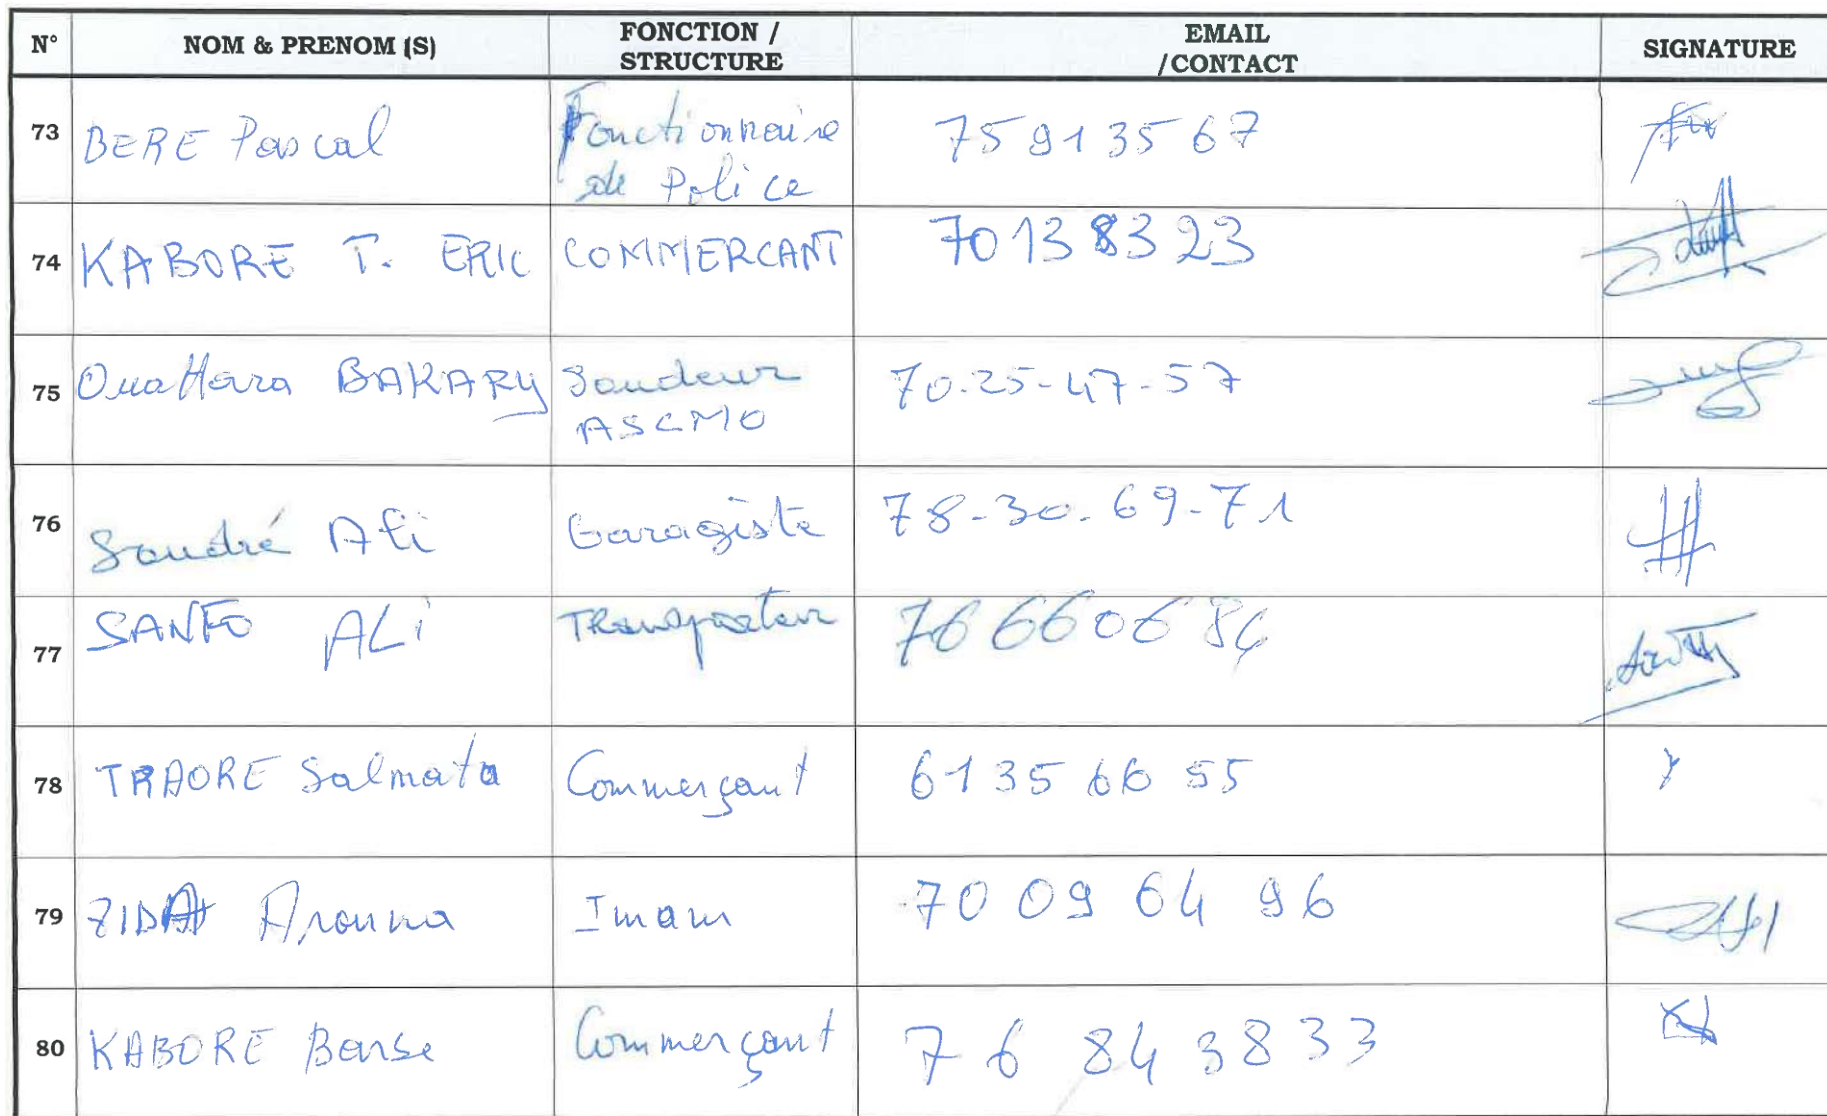 N° NOM & PRENOM (S) FONCTION / STRUCTURE EMAIL /CONTACT SIGNATURE
73 BERE Pascal Fonctionnaire de Police 75 91 35 67
74 KABORE T. ERIC COMMERCANT 70138323
75 Ouattara BAKARY Soudeur ASCMO 70.25-47-57
76 Soudré Ali Garagiste 78-30.69-71
77 SANFO ALi TRansporteur 76 66 06 84
78 TRAORE Salmata Commerçant 61 35 66 55
79 ZIDA Arouna Imam 70 09 64 96
80 KABORE Commerçant 76 84 38 33